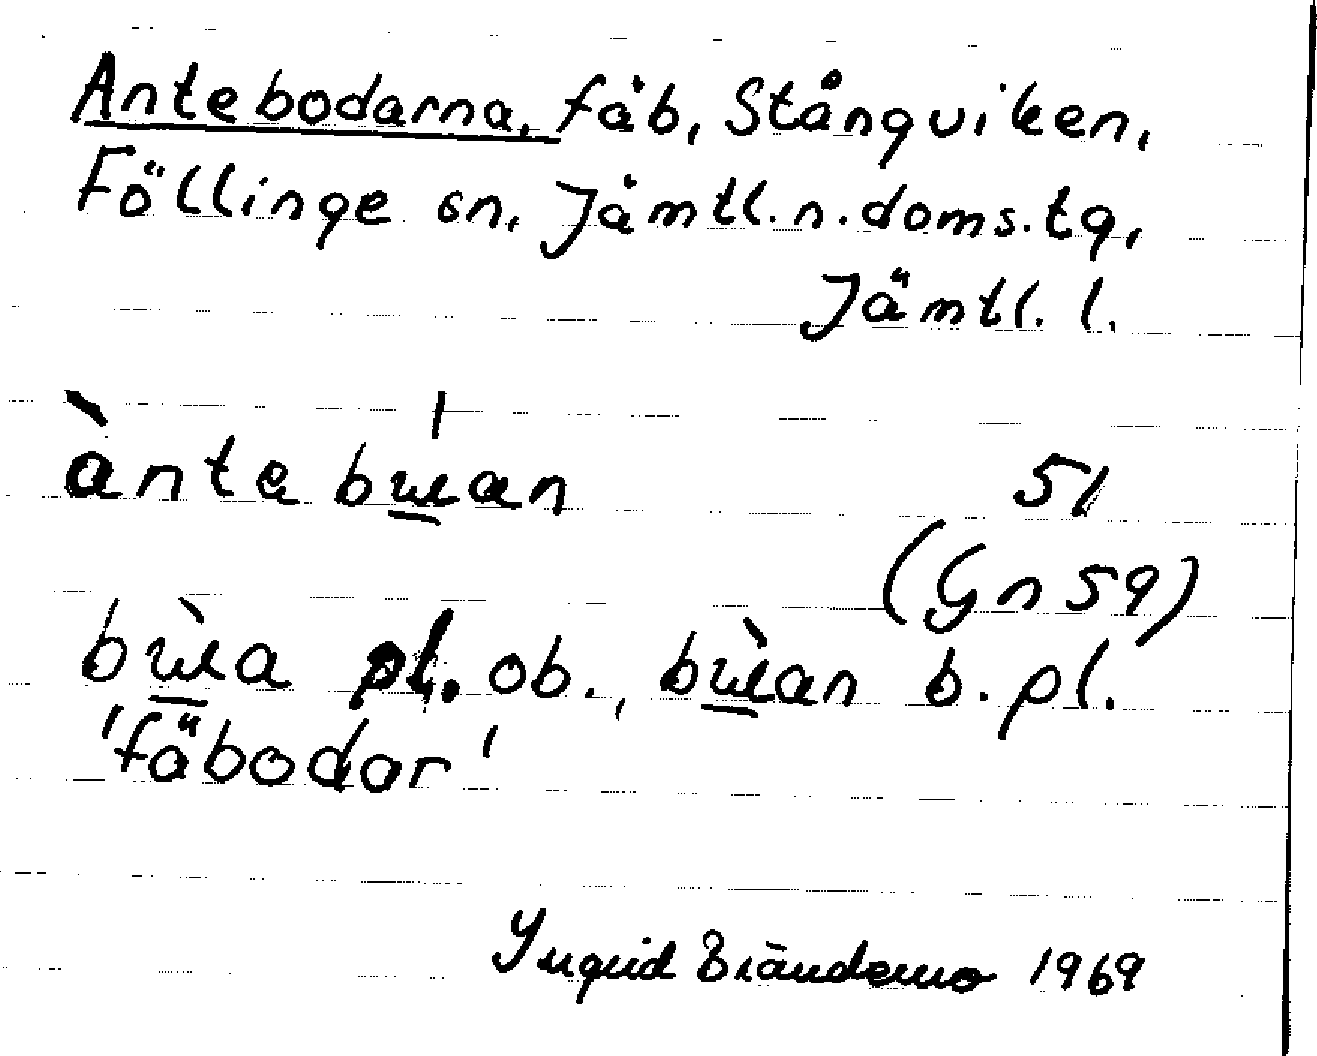 Antebodarna, fäb, Stångviken,
Föllinge sn, Jämtl. n. doms. tg,
Jämtl. l.
ànta bɯan 51
(Gn 59)
bɯ̀a pl. ob., bɯ̀an b. pl.
'fäbodar'
Ingrid Brändemo 1969